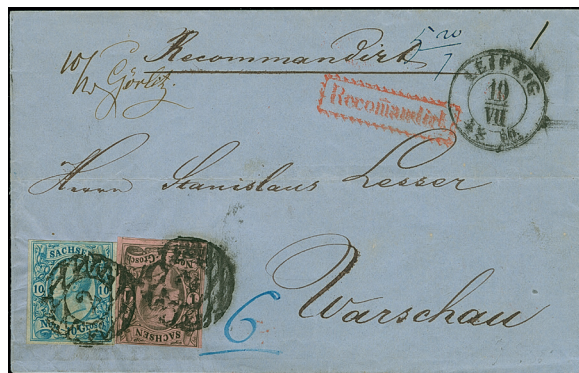 Recommandirt
5 20/7
1
Görlitz
Recomandirt
LEIPZIG
10
VII
Herrn Stanislaus Lesser
Warschau
6
SACHSEN
10 10
SACHSEN